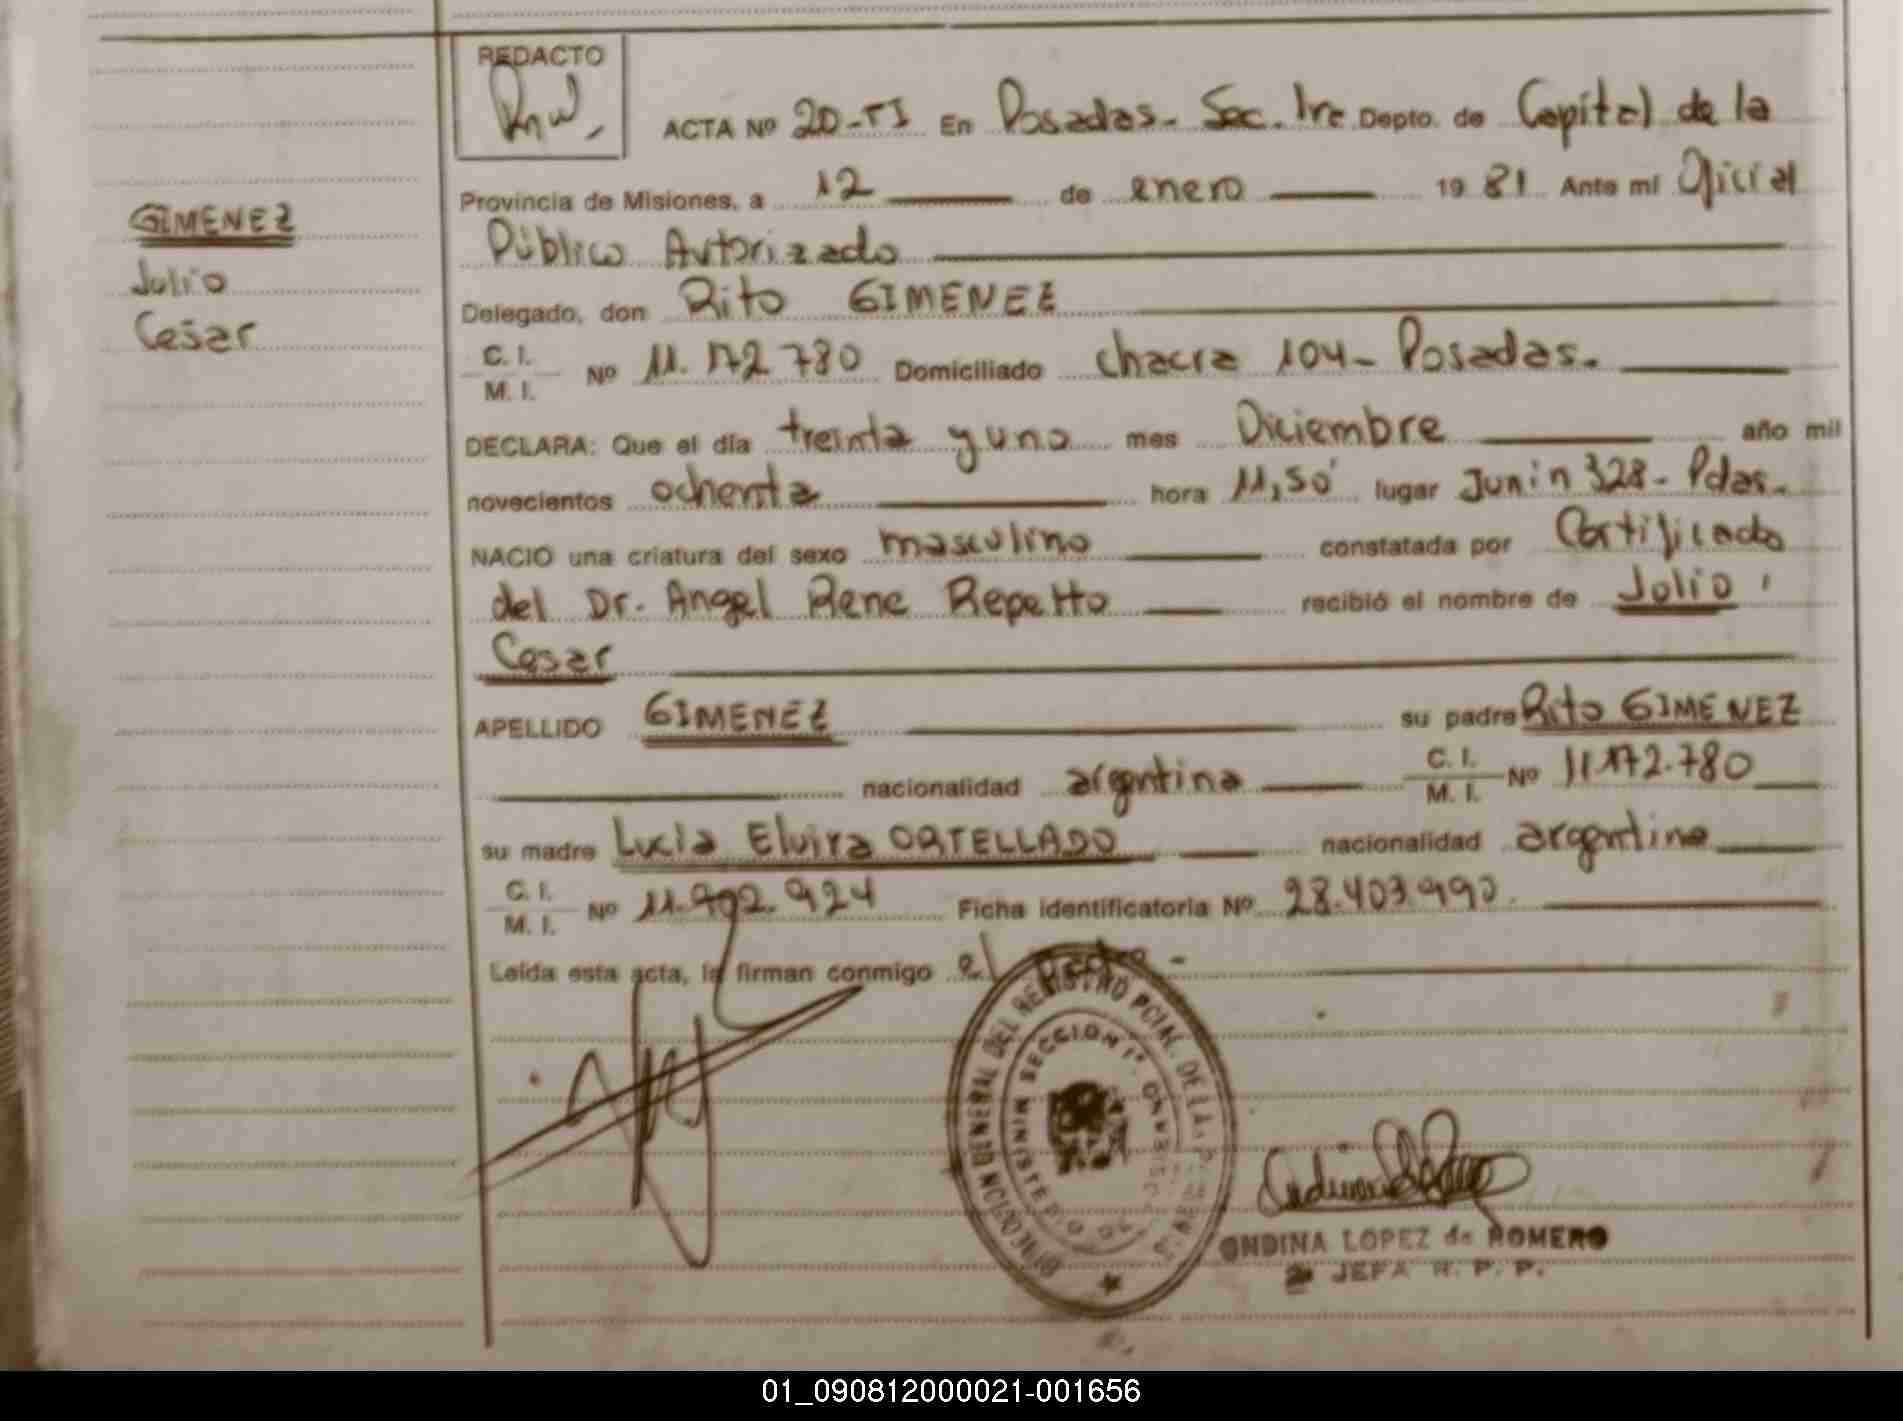 REDACTO
ACTA Nº 20-TI En Posadas - Sec. 1ra Depto. de Capital de la
Provincia de Misiones, a 12 de enero 1981 Ante mí Oficial
Público Autorizado
GIMENEZ
Julio
Cesar
Delegado, don Rito GIMENEZ
C. I.
M. I. Nº 11.172.780 Domiciliado chacra 104 - Posadas.
DECLARA: Que el día treinta y uno mes Diciembre año mil
novecientos ochenta hora 11,50' lugar Junin 328 - Pdas.
NACIO una criatura del sexo masculino constatada por Certificado
del Dr. Angel Rene Repetto recibió el nombre de Julio
Cesar
APELLIDO GIMENEZ su padre Rito GIMENEZ
nacionalidad argentina C. I.
M. I. Nº 11.172.780
su madre Lucia Elvira ORTELLADO nacionalidad argentina
C. I.
M. I. Nº 11.902.924 Ficha identificatoria Nº 28.403.990.
Leída esta acta, la firman conmigo el Padre -
DIRECCION GENERAL DEL REGISTRO PCIAL. DE LAS
SECCION 1ª
MINISTERIO DE GOBIERNO
ONDINA LOPEZ de ROMERO
JEFA R. P. P.
01_090812000021-001656